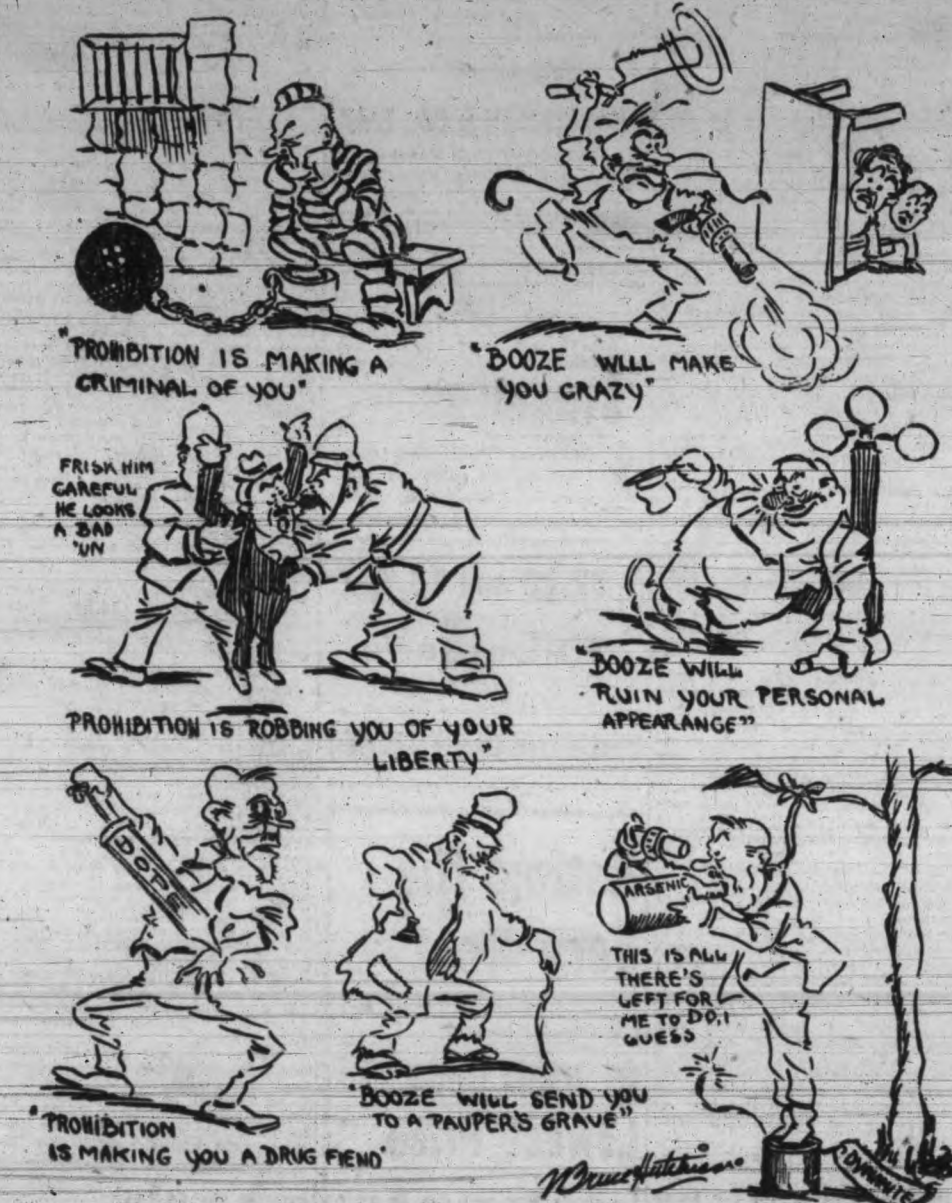 "PROHIBITION IS MAKING A
CRIMINAL OF YOU"
"BOOZE WLLL MAKE
YOU CRAZY"
FRISK HIM
CAREFUL
HE LOOKS
A BAD
'UN
PROHIBITION IS ROBBING YOU OF YOUR
LIBERTY"
"BOOZE WILL
RUIN YOUR PERSONAL
APPEARANCE"
DOPE
"PROHIBITION
IS MAKING YOU A DRUG FIEND"
"BOOZE WILL SEND YOU
TO A PAUPER'S GRAVE"
ARSENIC
THIS IS ALL
THERE'S
LEFT FOR
ME TO DO, I
GUESS
Bruce Hutchison